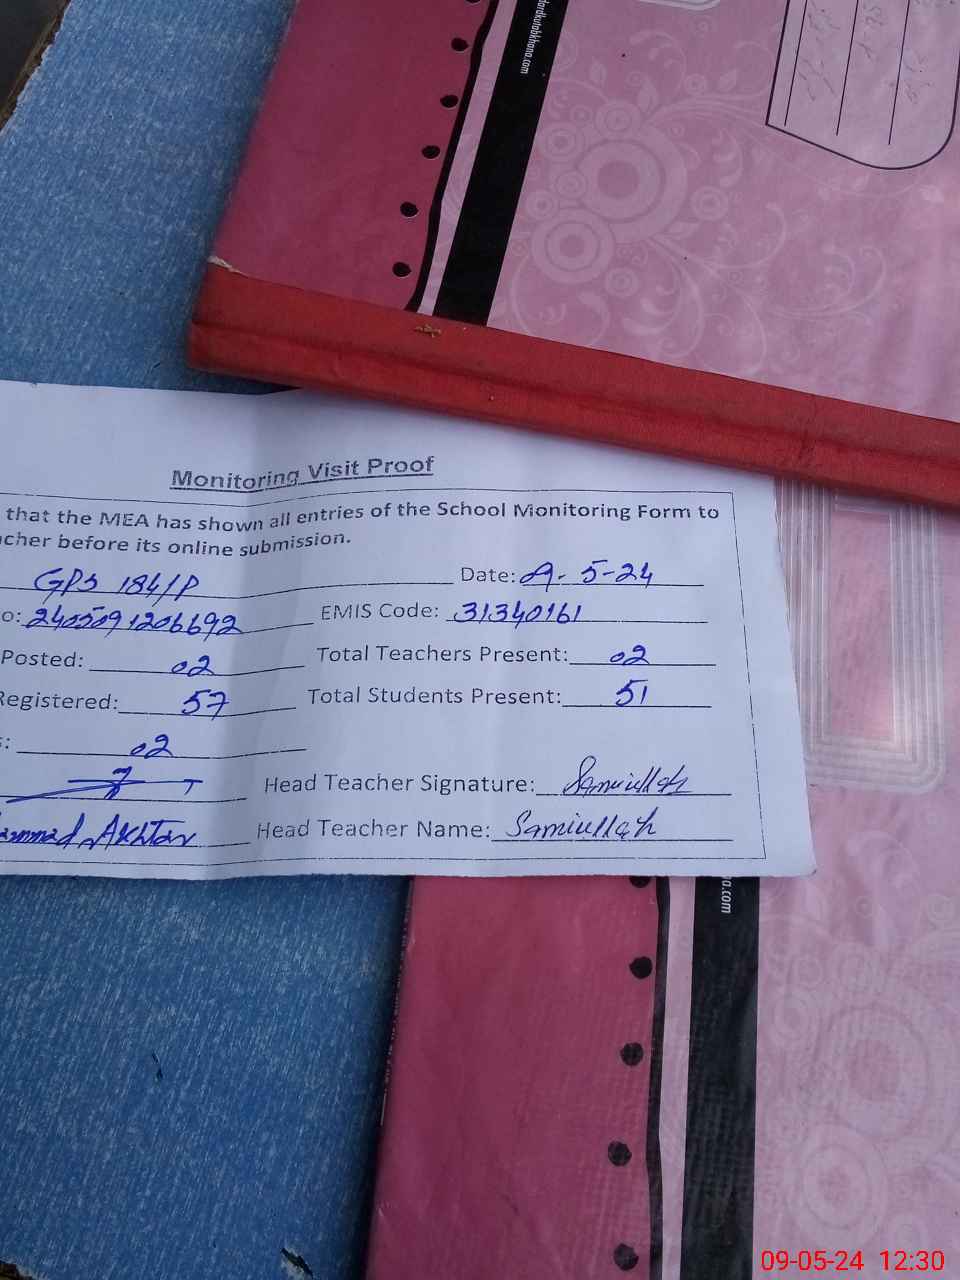 dardkutabkhana.com
Monitoring Visit Proof
that the MEA has shown all entries of the School Monitoring Form to
acher before its online submission.
GPS 184/P Date: 9-5-24
o: 2405091206692 EMIS Code: 31340161
Posted: 02 Total Teachers Present: 02
Registered: 57 Total Students Present: 51
s: 02
Head Teacher Signature: Samiullah
ammad Akhtar Head Teacher Name: Samiullah
na.com
09-05-24 12:30